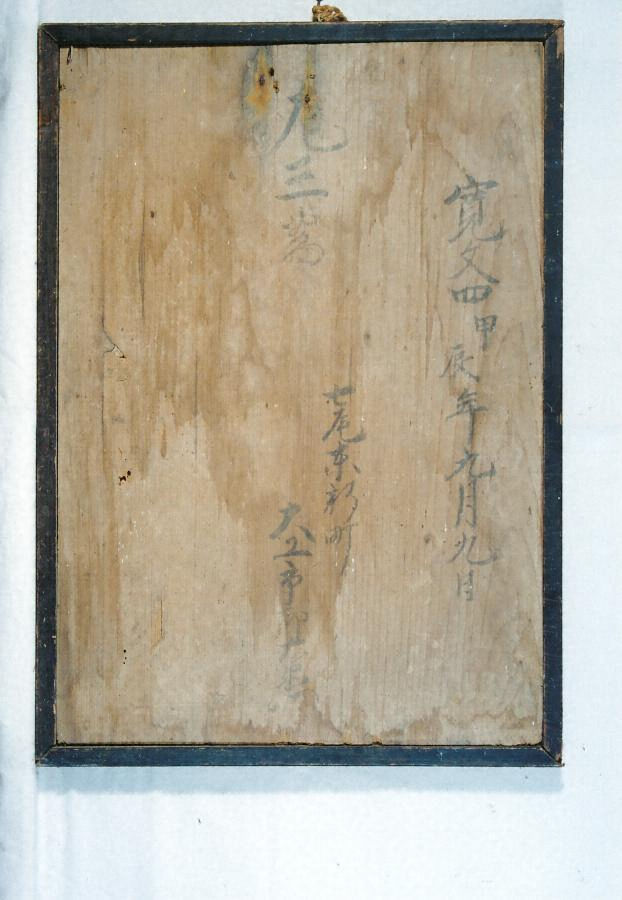 寛文四甲辰年九月九日
七尾東新町
大工市
九三